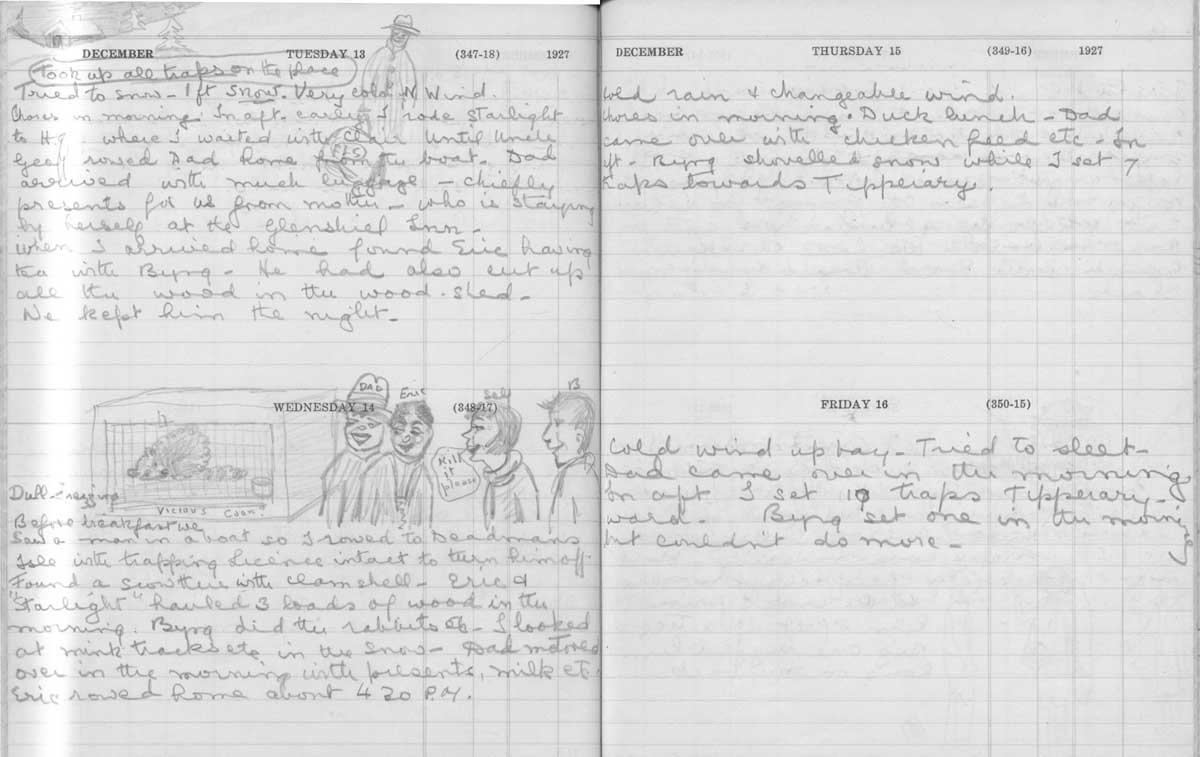 DECEMBER TUESDAY 13 (347-18) 1927
Took up all traps on the place
Tried to snow - 1 ft snow. Very cold N Wind.
Chores in morning. In aft. early I rode Starlight
to where I waited with until Uncle
rowed Dad home from the boat. Dad
arrived with much luggage - chiefly
presents for us from mother - who is staying
by herself at the Glenshiel Inn -
When I arrived home found Eric having
tea with Byng - He had also cut up
all the wood in the wood-shed -
We kept him the night -
WEDNESDAY 14 (348-17)
DAD
Eric
Self
B
Kill it please
Vicious Coon!
Dull - Freezing
Before breakfast we
saw a man in a boat so I rowed to Deadmans
Isle with trapping licence intact to turn him off
Found a scow there with clamshell - Eric &
"Starlight" hauled 3 loads of wood in the
morning. Byng did the rabbits etc - I looked
at mink tracks etc in the snow - Dad motored
over in the morning with presents, milk etc.
Eric rowed home about 4 30 P.M.
DECEMBER THURSDAY 15 (349-16) 1927
Cold rain & changeable wind.
Chores in morning. Duck lunch - Dad
came over with chicken feed etc - In
aft. Byng shovelled snow while I set 7
traps towards Tipperary.
FRIDAY 16 (350-15)
Cold wind up bay - Tried to sleet -
Dad came over in the morning
In aft I set 10 traps Tipperary-
ward. Byng set one in the morning
but couldn't do more -